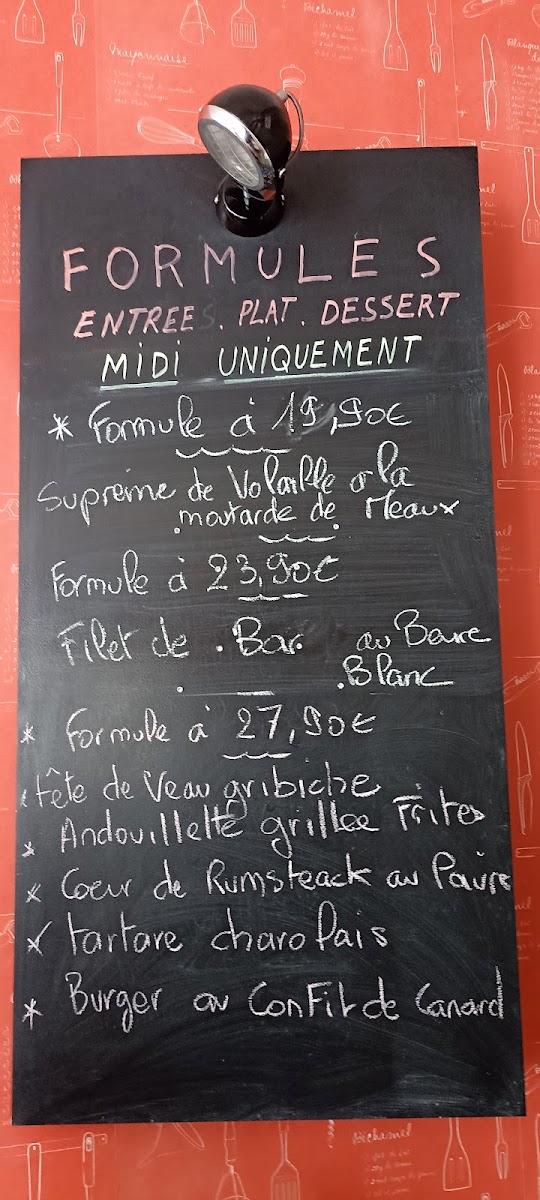 FORMULES
ENTREES . PLAT . DESSERT
MIDI UNIQUEMENT
* Formule à 19,90€
Suprème de Volaille a la
moutarde de Meaux
Formule à 23,90€
Filet de . Bar. au Beurre
Blanc
* Formule a' 27,90€
* tête de Veau gribiche
* Andouillette grillee Frites
* Coeur de Rumsteack au Poivre
* tartare charolais
* Burger au Confit de Canard
Béchamel
Mayonnaise
Béchamel